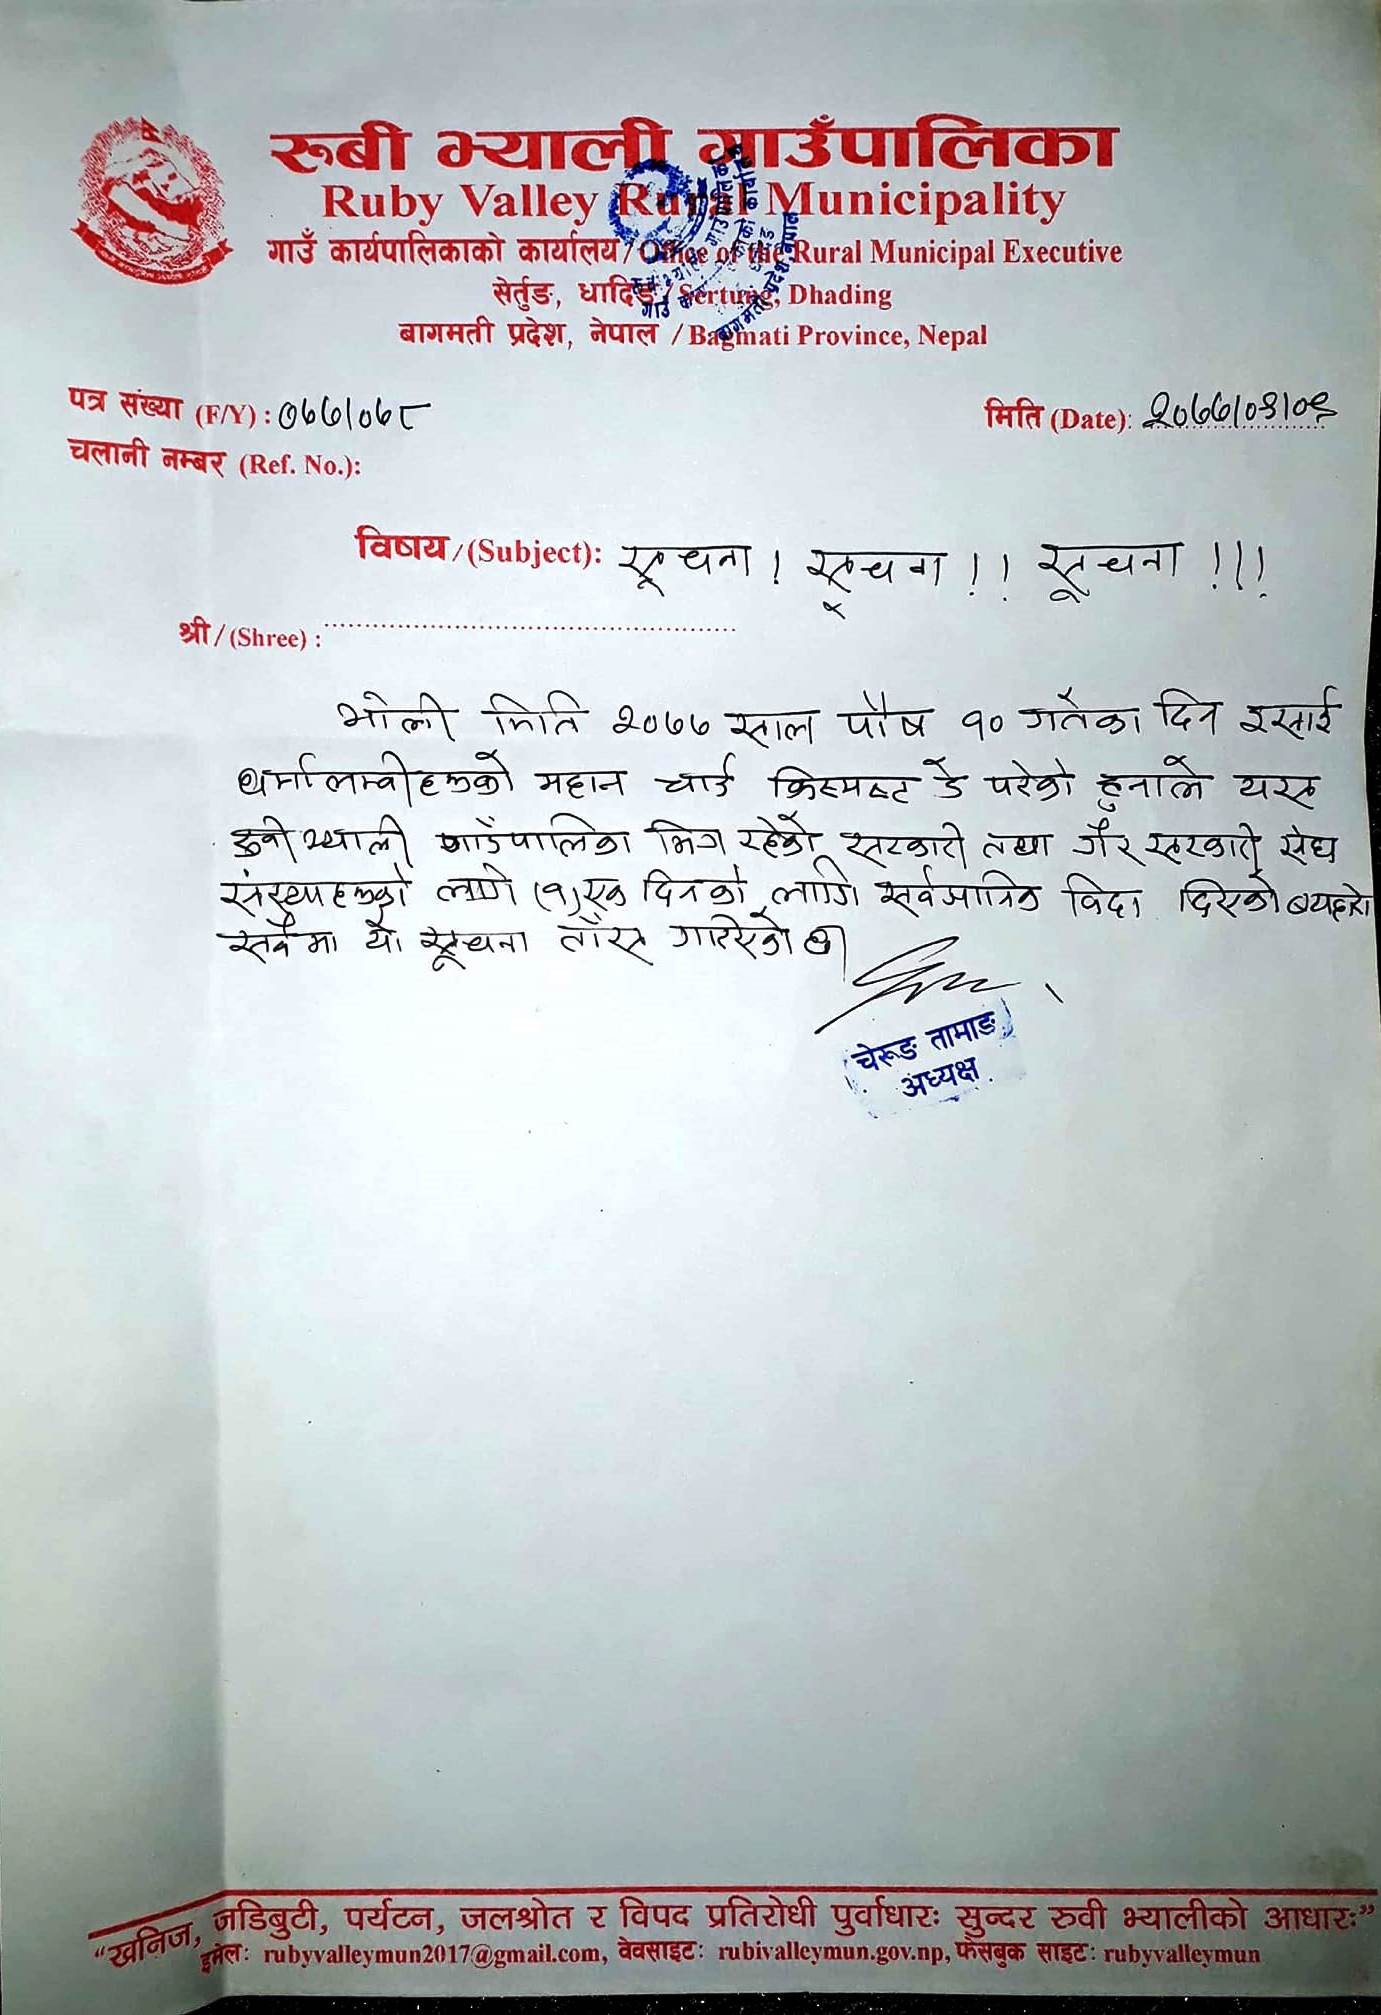 रुबी भ्याली गाउँपालिका
Ruby Valley Rural Municipality
गाउँ कार्यपालिकाको कार्यालय / Office of the Rural Municipal Executive
सेर्तुङ, धादिङ / Sertung, Dhading
बागमती प्रदेश, नेपाल / Bagmati Province, Nepal
पत्र संख्या (F/Y) : ०७७/०७८
मिति (Date): २०७७/०९/०९
चलानी नम्बर (Ref. No.):
विषय / (Subject): सूचना ! सूचना !! सूचना !!!
श्री / (Shree) :
भोली मिति २०७७ साल पौष १० गतेका दिन इसाई
धर्मालम्वीहरुको महान चार्ड क्रिसमस्ट डे परेको हुनाले यस
रुवी भ्याली गाउँपालिका भित्र रहेको सरकारी तथा गैर सरकारी संघ
संस्थाहरुको लागि (१) एक दिनको लागि सर्वजानिक विदा दिएको व्यहोरा
सवैमा यो सूचना जारी गरिएको छ।
चेरुङ तामाङ
अध्यक्ष
“खनिज, जडिबुटी, पर्यटन, जलश्रोत र विपद प्रतिरोधी पुर्वाधारः सुन्दर रुवी भ्यालीको आधारः”
इमेलः rubyvalleymun2017@gmail.com, वेवसाइटः rubivalleymun.gov.np, फेसबुक साइटः rubyvalleymun